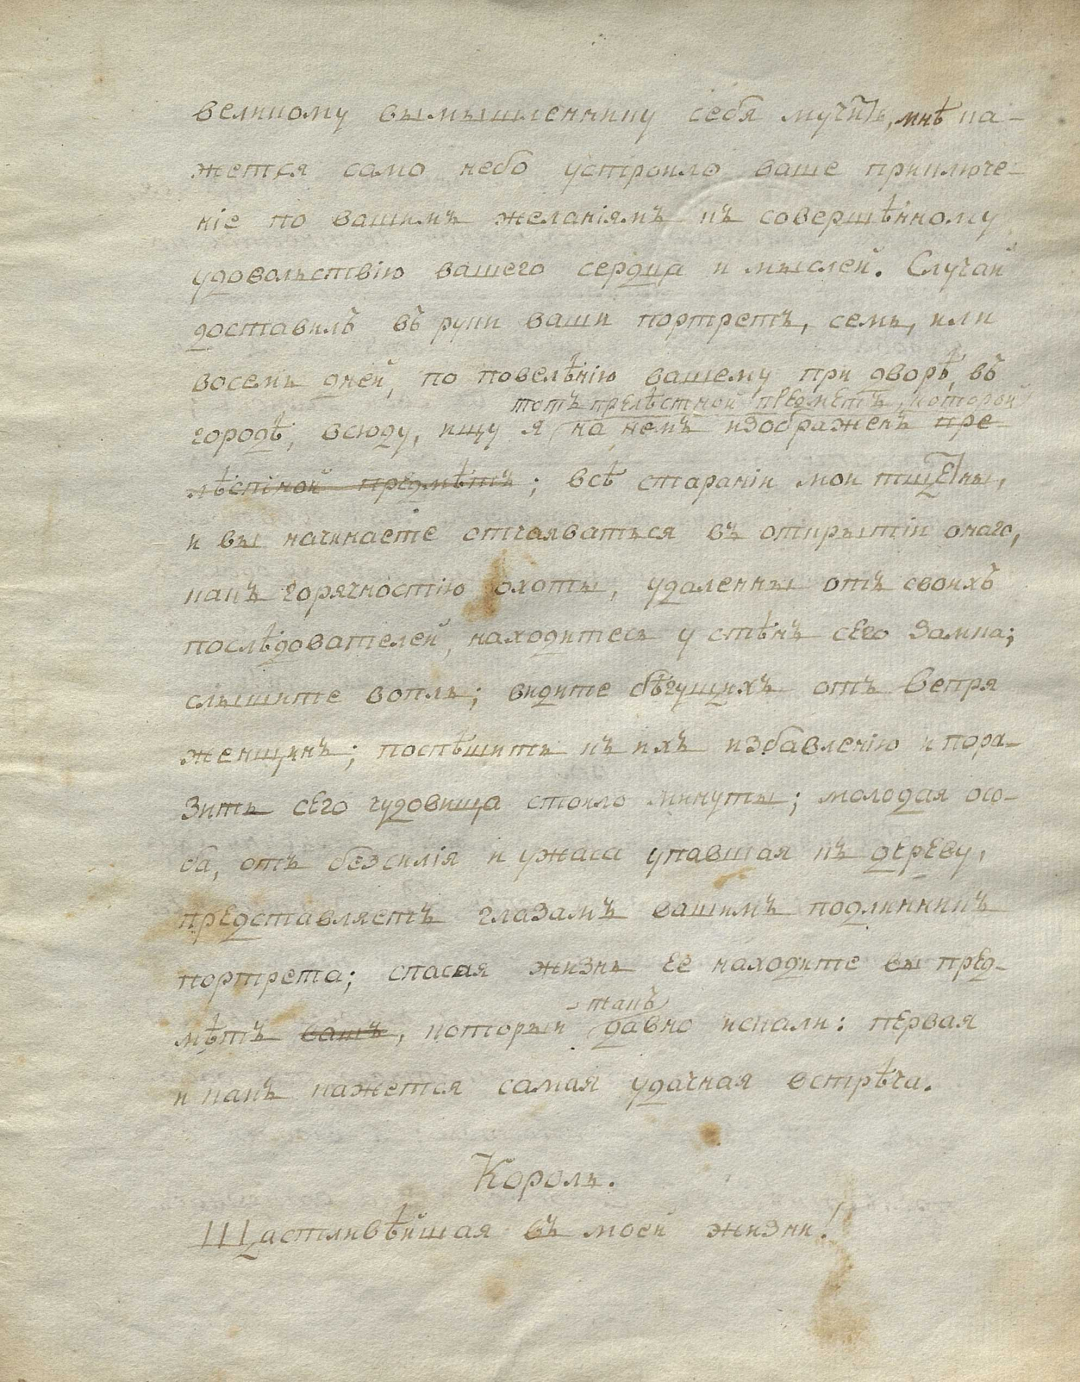 великому вымышленнику себя мучить, мнѣ ка-
жется само небо устроило ваше приключе-
ніе по вашимъ желаніямъ къ совершѣнному
удовольствію вашего сердца и мыслей. Случай
доставилъ въ руки ваши портретъ, семь, или
восемь дней, по повелѣнію вашему, при дворѣ, въ
тотъ прелѣстной предметъ, которой
городѣ, всюду, ищу я на немъ изображенъ пре-
лѣстной предмѣтъ; всѣ старанiи мои тщЕтны,
и вы начинаете отчаяваться въ открытіи онаго,
какъ горячностію охоты, удаленны отъ своихъ
послѣдователей, находитесь у стѣнъ сего Замка;
слышите вопль; видите бѣгущихъ отъ Вепря
женщинъ; поспѣшить къ ихъ избавленію и пора-
Зить сего чудовища стоило минуты; молодая осо-
ба, отъ безсилія и ужаса упавшая къ дереву,
представляетъ глазамъ вашимъ подлинникъ
портрета; спасая жизнь ее находите вы пред-
такъ
мѣтъ вашъ, который давно искали: первая
и какъ кажется самая удачная встрѣча.
Король.
Щастливѣйшая въ моей жизни!